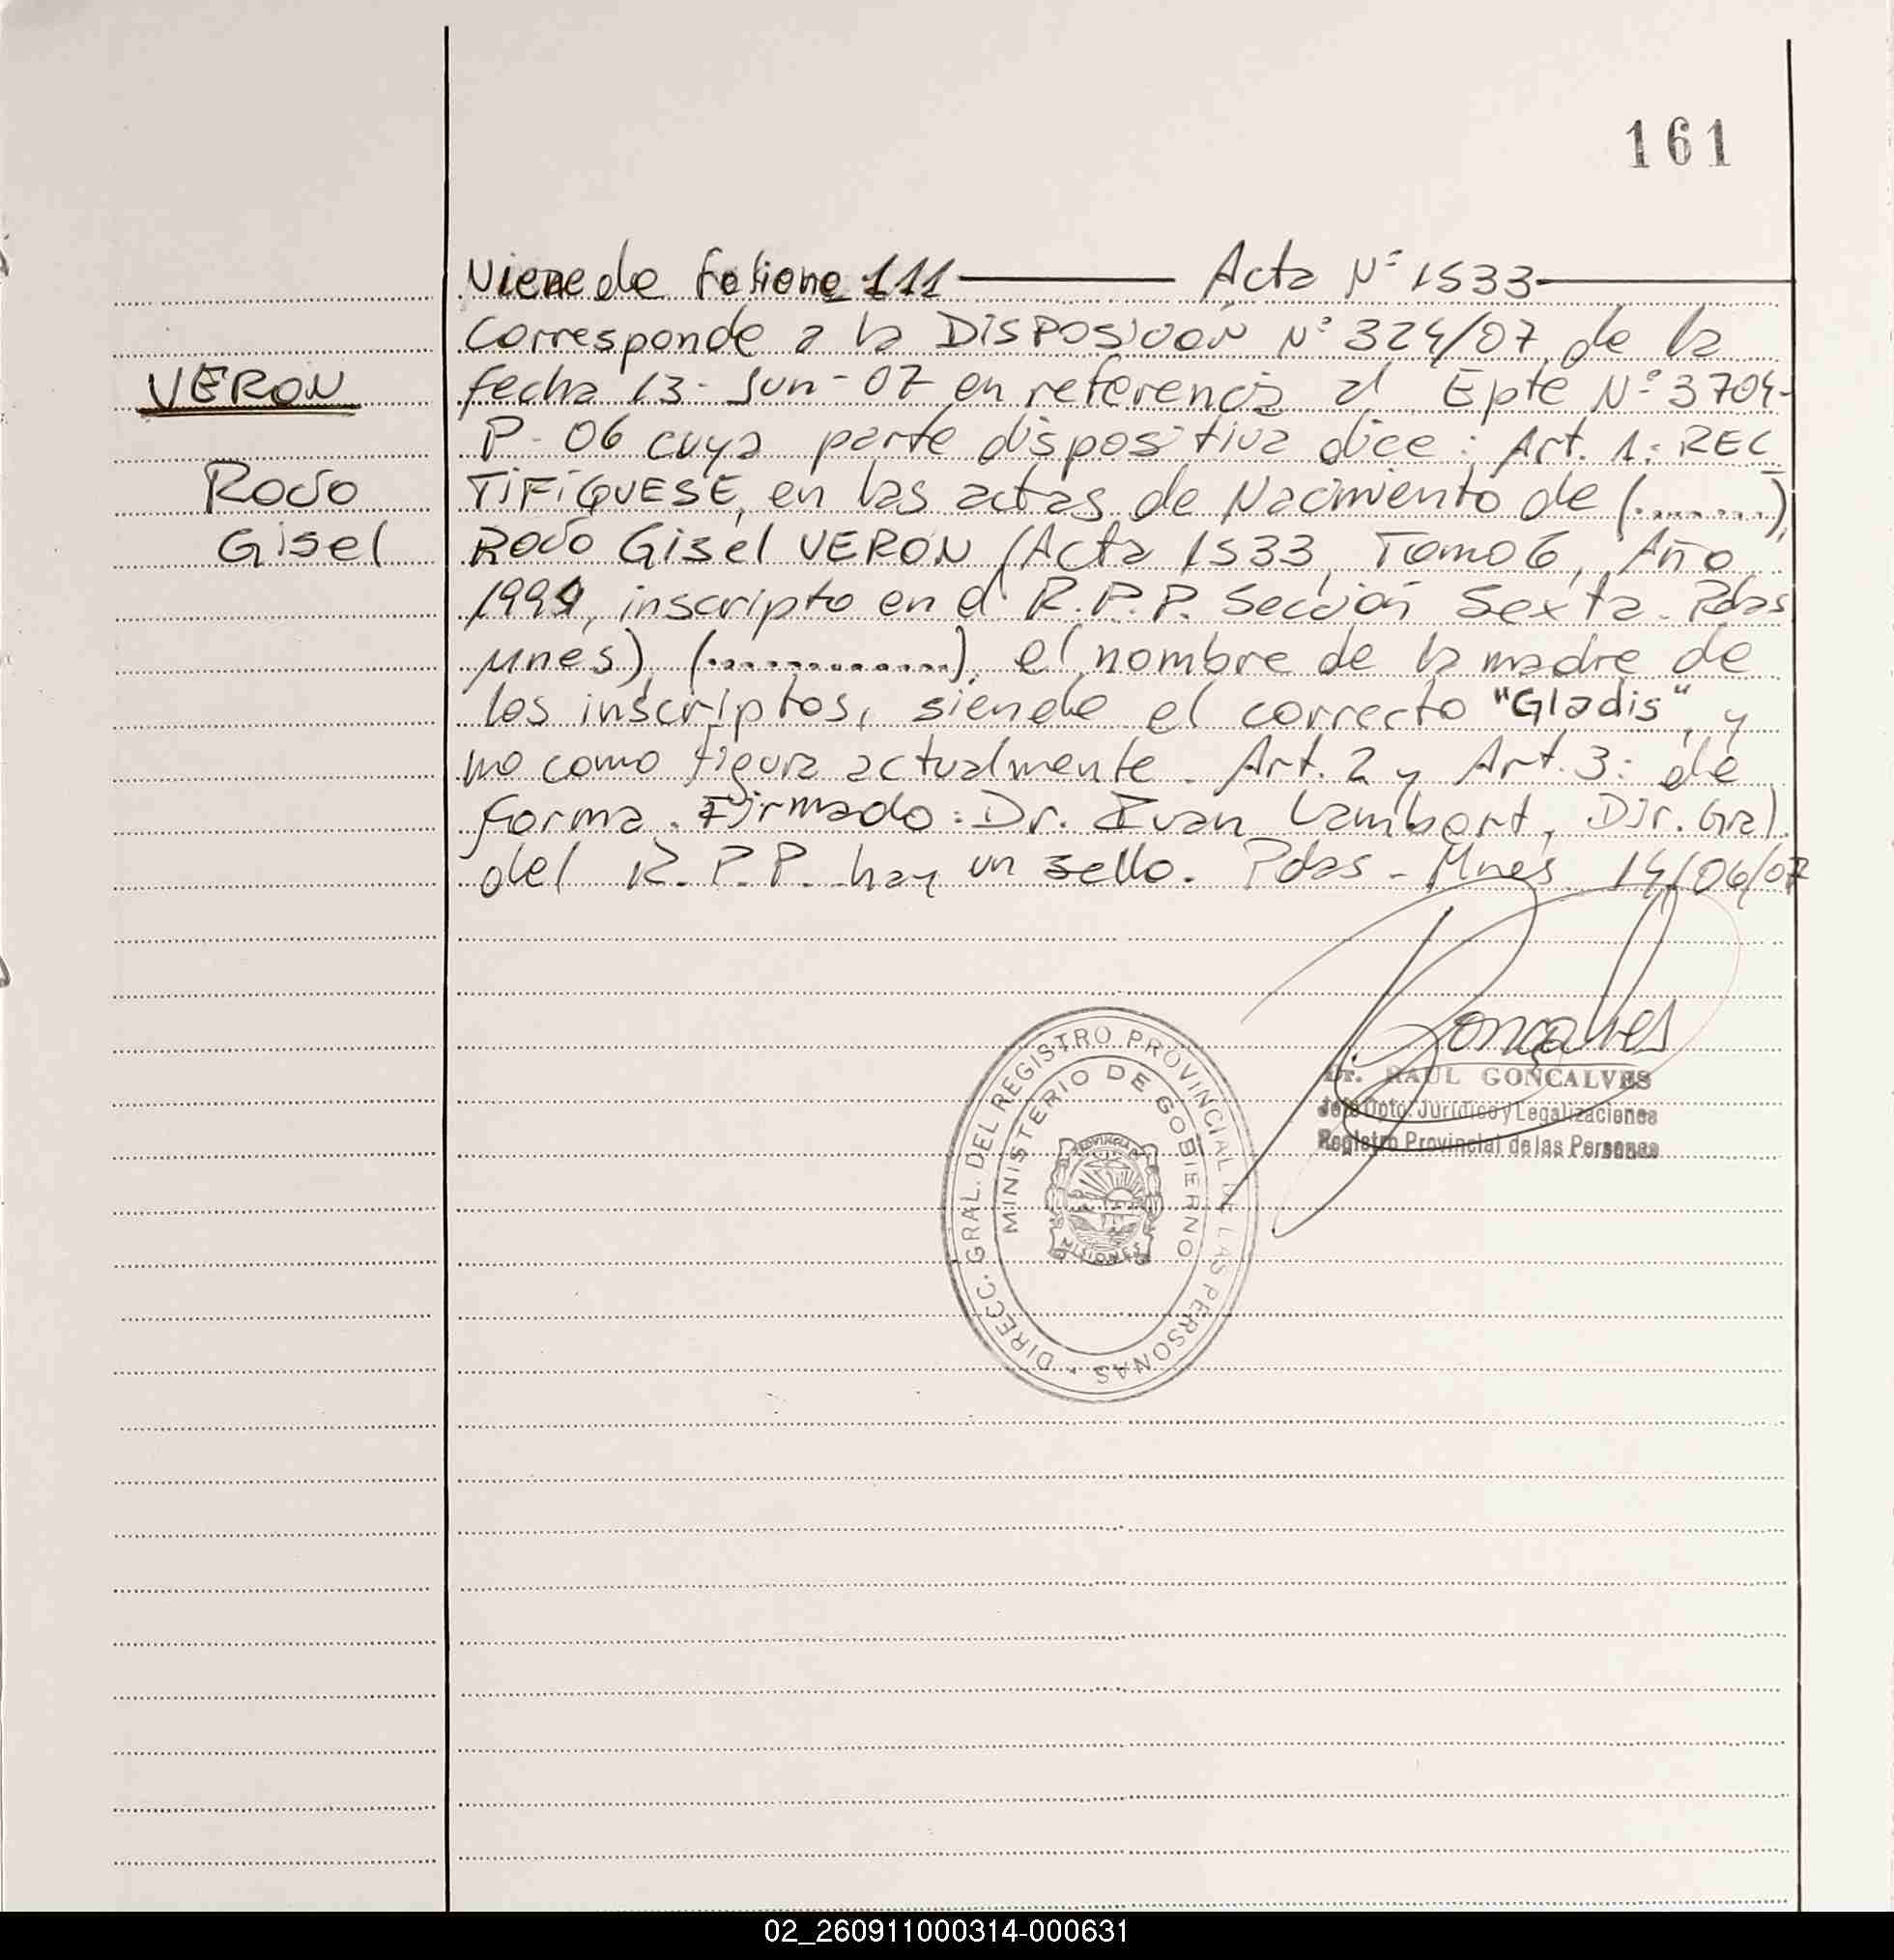 161
Viene de foliono 111 — Acta Nº 1533 —
Corresponde a la DISPOSICION Nº 324/07, de la
VERON
fecha 13-Jun-07 en referencia al Epte Nº 3704-
P-06 cuya parte dispositiva dice: Art. 1: REC
Rocío
TIFÍQUESE, en las actas de Nacimiento de (.........)
Gisel
Rocío Gisel VERON (Acta 1533, Tomo 6, Año
1994, inscripto en el R.P.P. Sección Sexta. Pdas
Mnes) (..............), el nombre de la madre de
los inscriptos, siendo el correcto "Gladis", y
no como figura actualmente. Art. 2 y Art. 3: de
forma. Firmado: Dr. Ivan Lambert, Dir. Gral.
del R.P.P. hay un sello. Pdas - Mnes 14/06/07
Goncalves
Dr. RAUL GONCALVES
Jefe Dpto. Jurídico y Legalizaciones
Registro Provincial de las Personas
DIRECC. GRAL. DEL REGISTRO PROVINCIAL DE LAS PERSONAS
MINISTERIO DE GOBIERNO
PROVINCIA
MISIONES
02_260911000314-000631